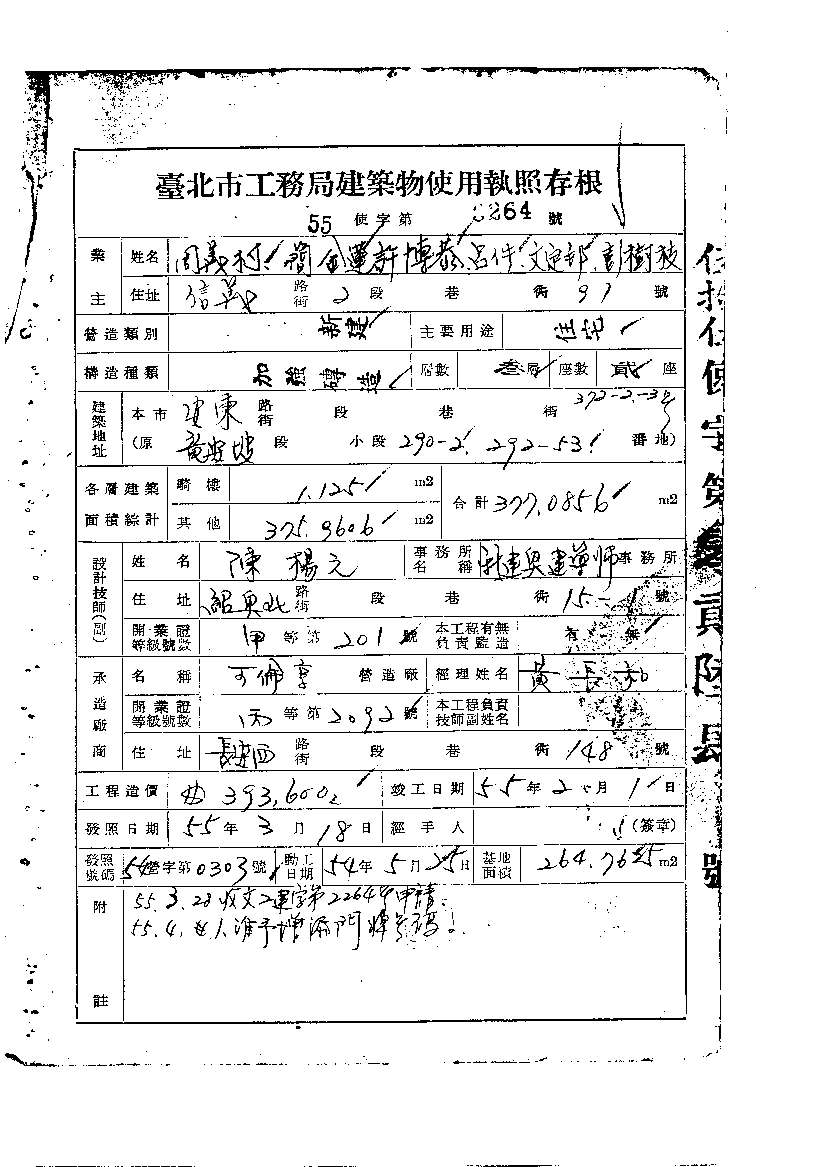 臺北市工務局建築物使用執照存根
55 使字第 0264 號
業主 姓名 周義村 簡金運 許博恭 呂件 文定郎 彭樹枝
住址 信義 路街 2 段 巷 街 91 號
營造類別 新建 主要用途 住宅
構造種類 加強磚造 層數 叁層 座數 貳座
建築地址 本市 安東 路街 段 巷 街 372-2.-3號
(原 黃安坡 段 小段 290-2. 292-53 番地)
各層建築面積綜計 騎樓 1.125 m2 合計 377.0856 m2
其他 375.9606 m2
設計技師(副) 姓名 陳楊之 事務所名稱 建築師事務所
住址 紹興北 路街 段 巷 街 15-1 號
開業證等級號數 甲等第 201 號 本工程有無負責監造 有 無
承造廠商 名稱 營造廠 經理姓名 黃長
開業證等級號數 丙等第 2092 號 本工程負責技師副姓名
住址 長安西 路街 段 巷 街 148 號
工程造價 393,600 竣工日期 55年2月1日
發照日期 55年3月18日 經手人 (簽章)
發照號碼 54營字第0303號 動工日期 54年5月25日 基地面積 264.7625 m2
附註 55.3.28收文工建字第2264申請.
55.4. 准予增添門牌號碼!
伍拾伍使字第 貳陸 號